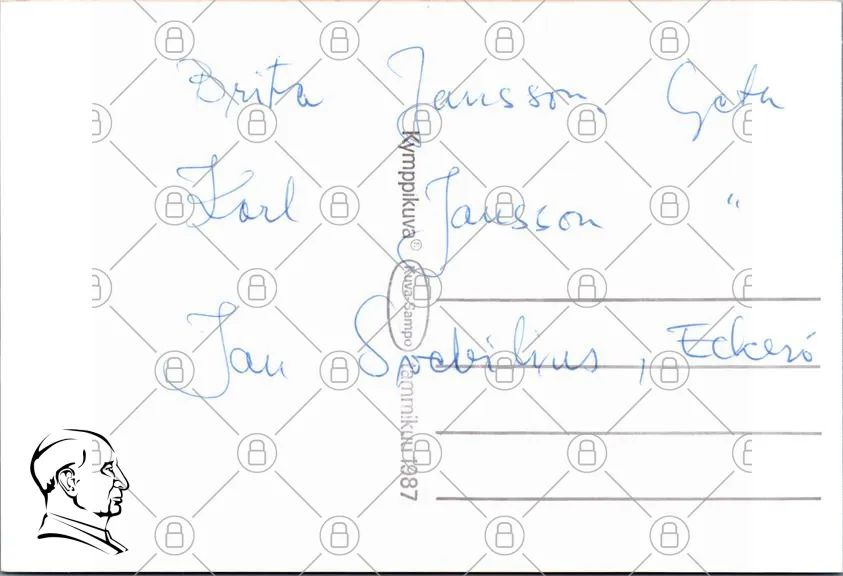 Brita Jansson, Geta
Karl Jansson "
Jan Svebilius, Eckerö
Kymppikuva®
Kuva-Sampo
Tammikuu 1987